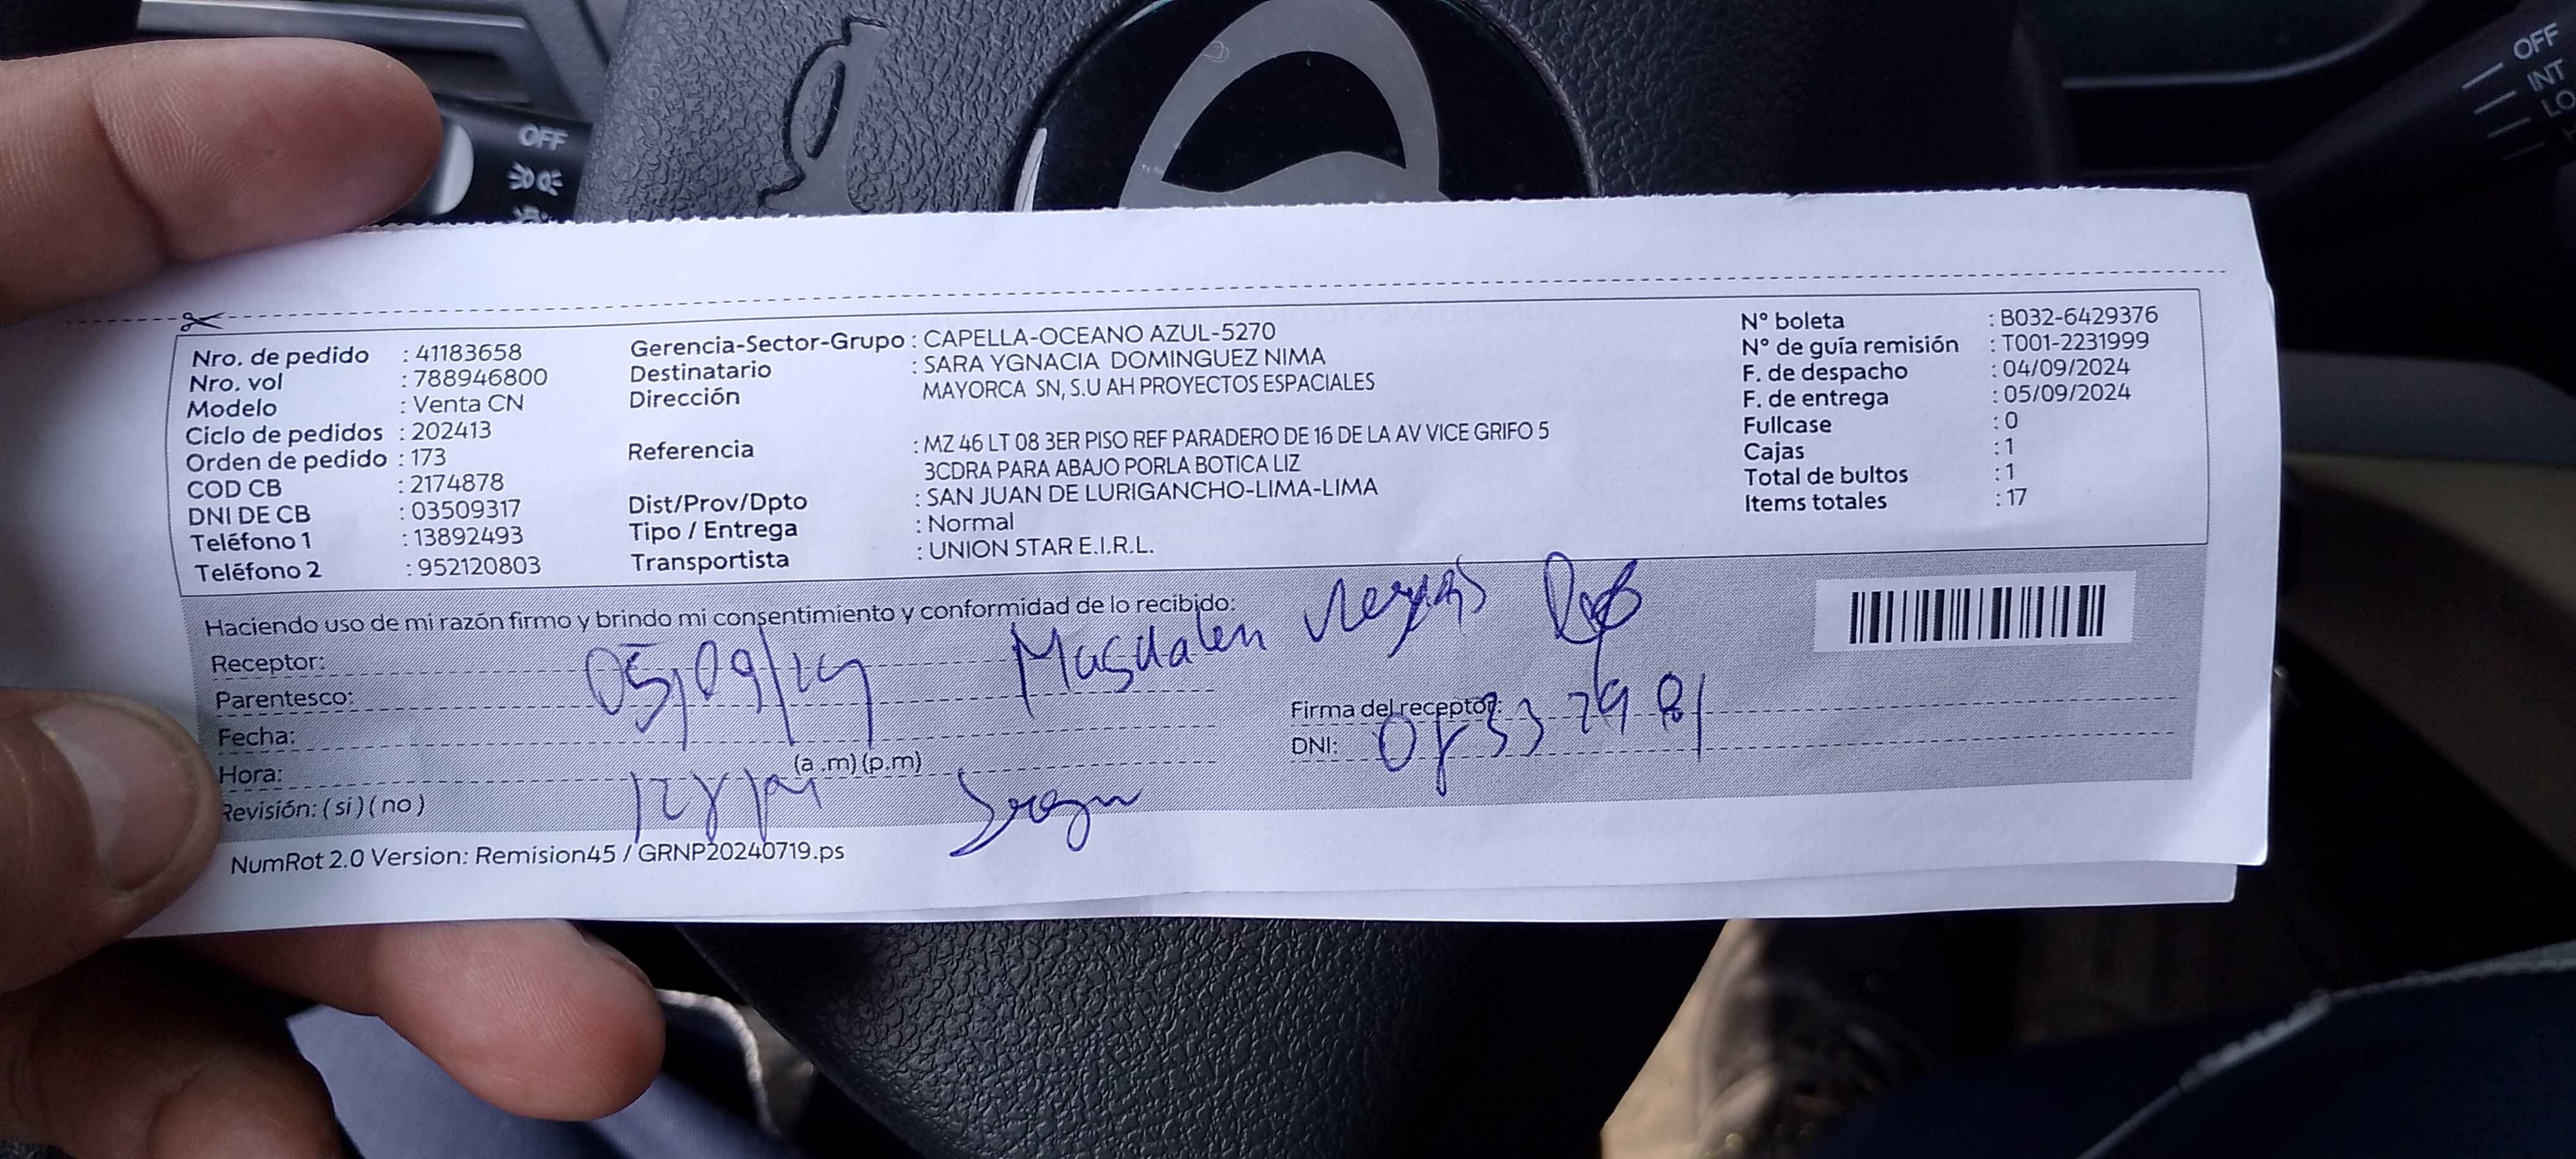 OFF
OFF
INT
LO
Nro. de pedido : 41183658
Nro. vol : 788946800
Modelo : Venta CN
Ciclo de pedidos : 202413
Orden de pedido : 173
COD CB : 2174878
DNI DE CB : 03509317
Teléfono 1 : 13892493
Teléfono 2 : 952120803
Gerencia-Sector-Grupo : CAPELLA-OCEANO AZUL-5270
Destinatario : SARA YGNACIA DOMINGUEZ NIMA
Dirección MAYORCA SN, S.U AH PROYECTOS ESPACIALES
Referencia : MZ 46 LT 08 3ER PISO REF PARADERO DE 16 DE LA AV VICE GRIFO 5
3CDRA PARA ABAJO PORLA BOTICA LIZ
Dist/Prov/Dpto : SAN JUAN DE LURIGANCHO-LIMA-LIMA
Tipo / Entrega : Normal
Transportista : UNION STAR E.I.R.L.
N° boleta : B032-6429376
N° de guía remisión : T001-2231999
F. de despacho : 04/09/2024
F. de entrega : 05/09/2024
Fullcase : 0
Cajas : 1
Total de bultos : 1
Items totales : 17
Haciendo uso de mi razón firmo y brindo mi consentimiento y conformidad de lo recibido:
Receptor: Magdalen
Parentesco: 05/09/24
Fecha:
Hora: (a .m) (p.m)
Revisión: ( si ) ( no )
Firma del receptor:
DNI:
NumRot 2.0 Version: Remision45 / GRNP20240719.ps